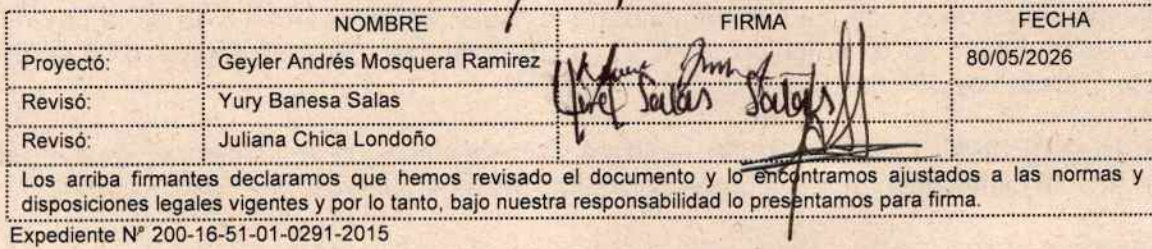 NOMBRE FIRMA FECHA
Proyectó: Geyler Andrés Mosquera Ramirez 80/05/2026
Revisó: Yury Banesa Salas Salas
Revisó: Juliana Chica Londoño
Los arriba firmantes declaramos que hemos revisado el documento y lo encontramos ajustados a las normas y
disposiciones legales vigentes y por lo tanto, bajo nuestra responsabilidad lo presentamos para firma.
Expediente N° 200-16-51-01-0291-2015